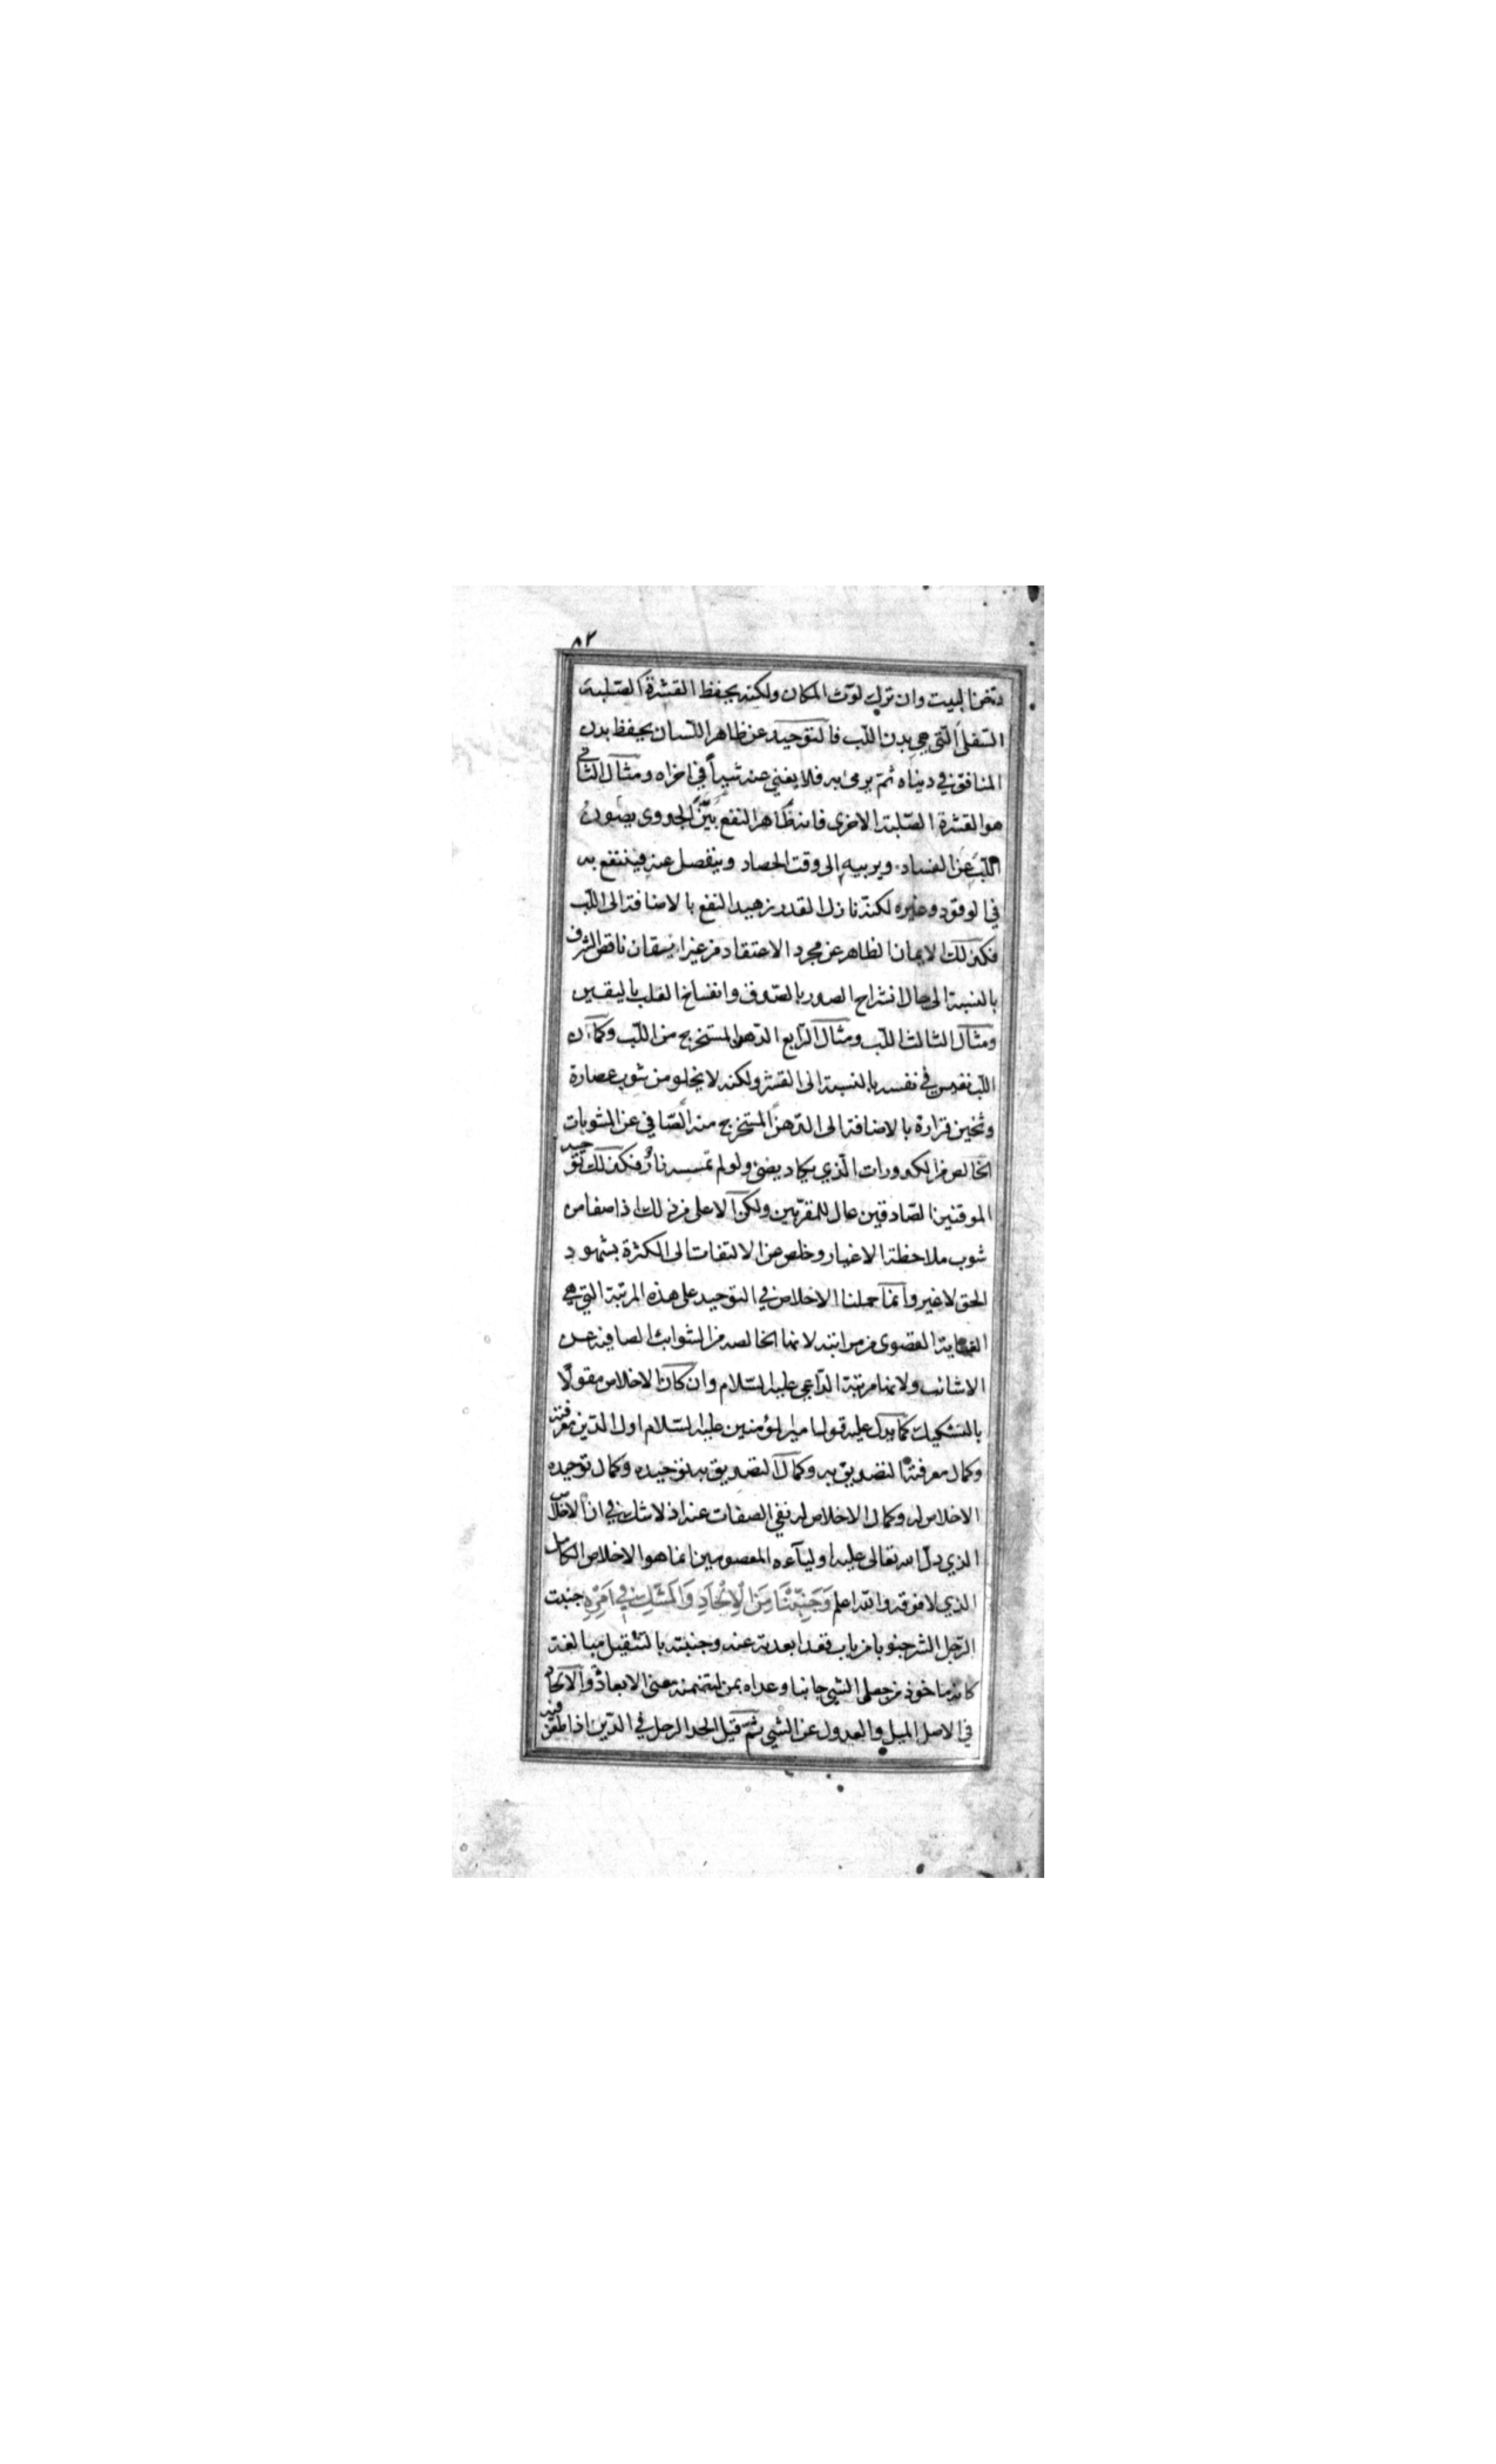 ٥٢
دخن البيت وان ترك لوث المكان ولكنه يحفظ القشرة الصلبة
السفلى التي هي بدن اللب فالتوحيد عن ظاهر اللسان يحفظ بدن
المنافق في دنياه ثم يرمى به فلا يغني عنه شيئاً في اخراه ومثال الثاني
هو القشرة الصلبة الاخرى فانه ظاهر النفع بيّن الجدوى يصون
اللب عن الفساد ويربيه الى وقت الحصاد وينفصل عنه فينتفع به
في الوقود وغيره لكنه نازل القدر زهيد النفع بالاضافة الى اللب
فكذلك الايمان الظاهر عن مجرد الاعتقاد من غير ايقان ناقص الشرف
بالنسبة الى حال انشراح الصدر بالصدق وانفساخ القلب باليقين
ومثال الثالث اللب ومثال الرابع الدهن المستخرج من اللب وكما ان
اللب نفيس في نفسه بالنسبة الى القشر ولكنه لا يخلو من شوب عصارة
وثخين قرارة بالاضافة الى الدهن المستخرج منه الصافي عن المشوبات
الخالص من الكدورات الذي يكاد يضئ ولو لم تمسسه نارٌ فكذلك توحيد
الموقنين الصادقين عال للمقربين ولكن الاعلى من ذلك اذا صفا من
شوب ملاحظة الاغيار وخلص عن الالتفات الى الكثرة بشهود
الحق لا غير وانما حملنا الاخلاص في التوحيد على هذه المرتبة التي هي
الغاية القصوى من مراتبه لانها الخالصة من الشوائب الصافية عن
الاشائب ولانها مرتبة الداعي عليه السلام وان كان الاخلاص مقولاً
بالتشكيك كما يدل عليه قول امير المؤمنين عليه السلام اول الدين معرفته
وكمال معرفته التصديق به وكمال التصديق به توحيده وكمال توحيده
الاخلاص له وكمال الاخلاص له نفي الصفات عنه اذ لا شك في ان الاخلاص
الذي دل الله تعالى عليه اولياءه المعصومين انما هو الاخلاص الكامل
الذي لا فوقه والله اعلم وَجَنَّبَنَا مِنَ الْاِلْحَادِ وَالشَّكِّ فِي اَمْرِهِ جنبت
الرجل الشر جنوبا من باب قعد ابعدته عنه وجنبته بالتثقيل مبالغة
كانه ماخوذ من جعل الشي جانبا وعداه بمن لتضمنه معنى الابعاد والالحاد
في الاصل الميل والعدول عن الشي ثم قيل الحد الرجل في الدين اذا طعن فيه